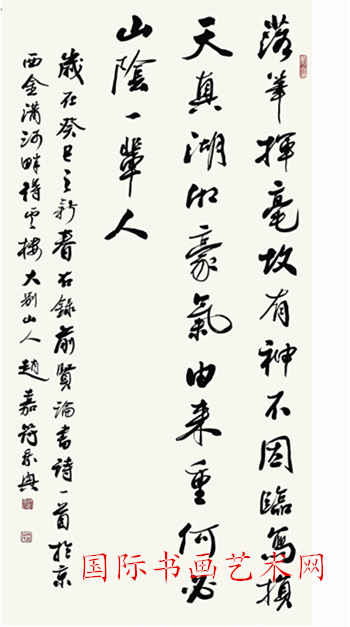 落笔挥毫故有神不因临写损
天真湖州豪氣由来重何必
山陰一輩人
歲在癸巳之新春右録前賢論書詩一首於京
西金溝河畔得雲樓大别山人趙嘉符泉興
国际书画艺术网